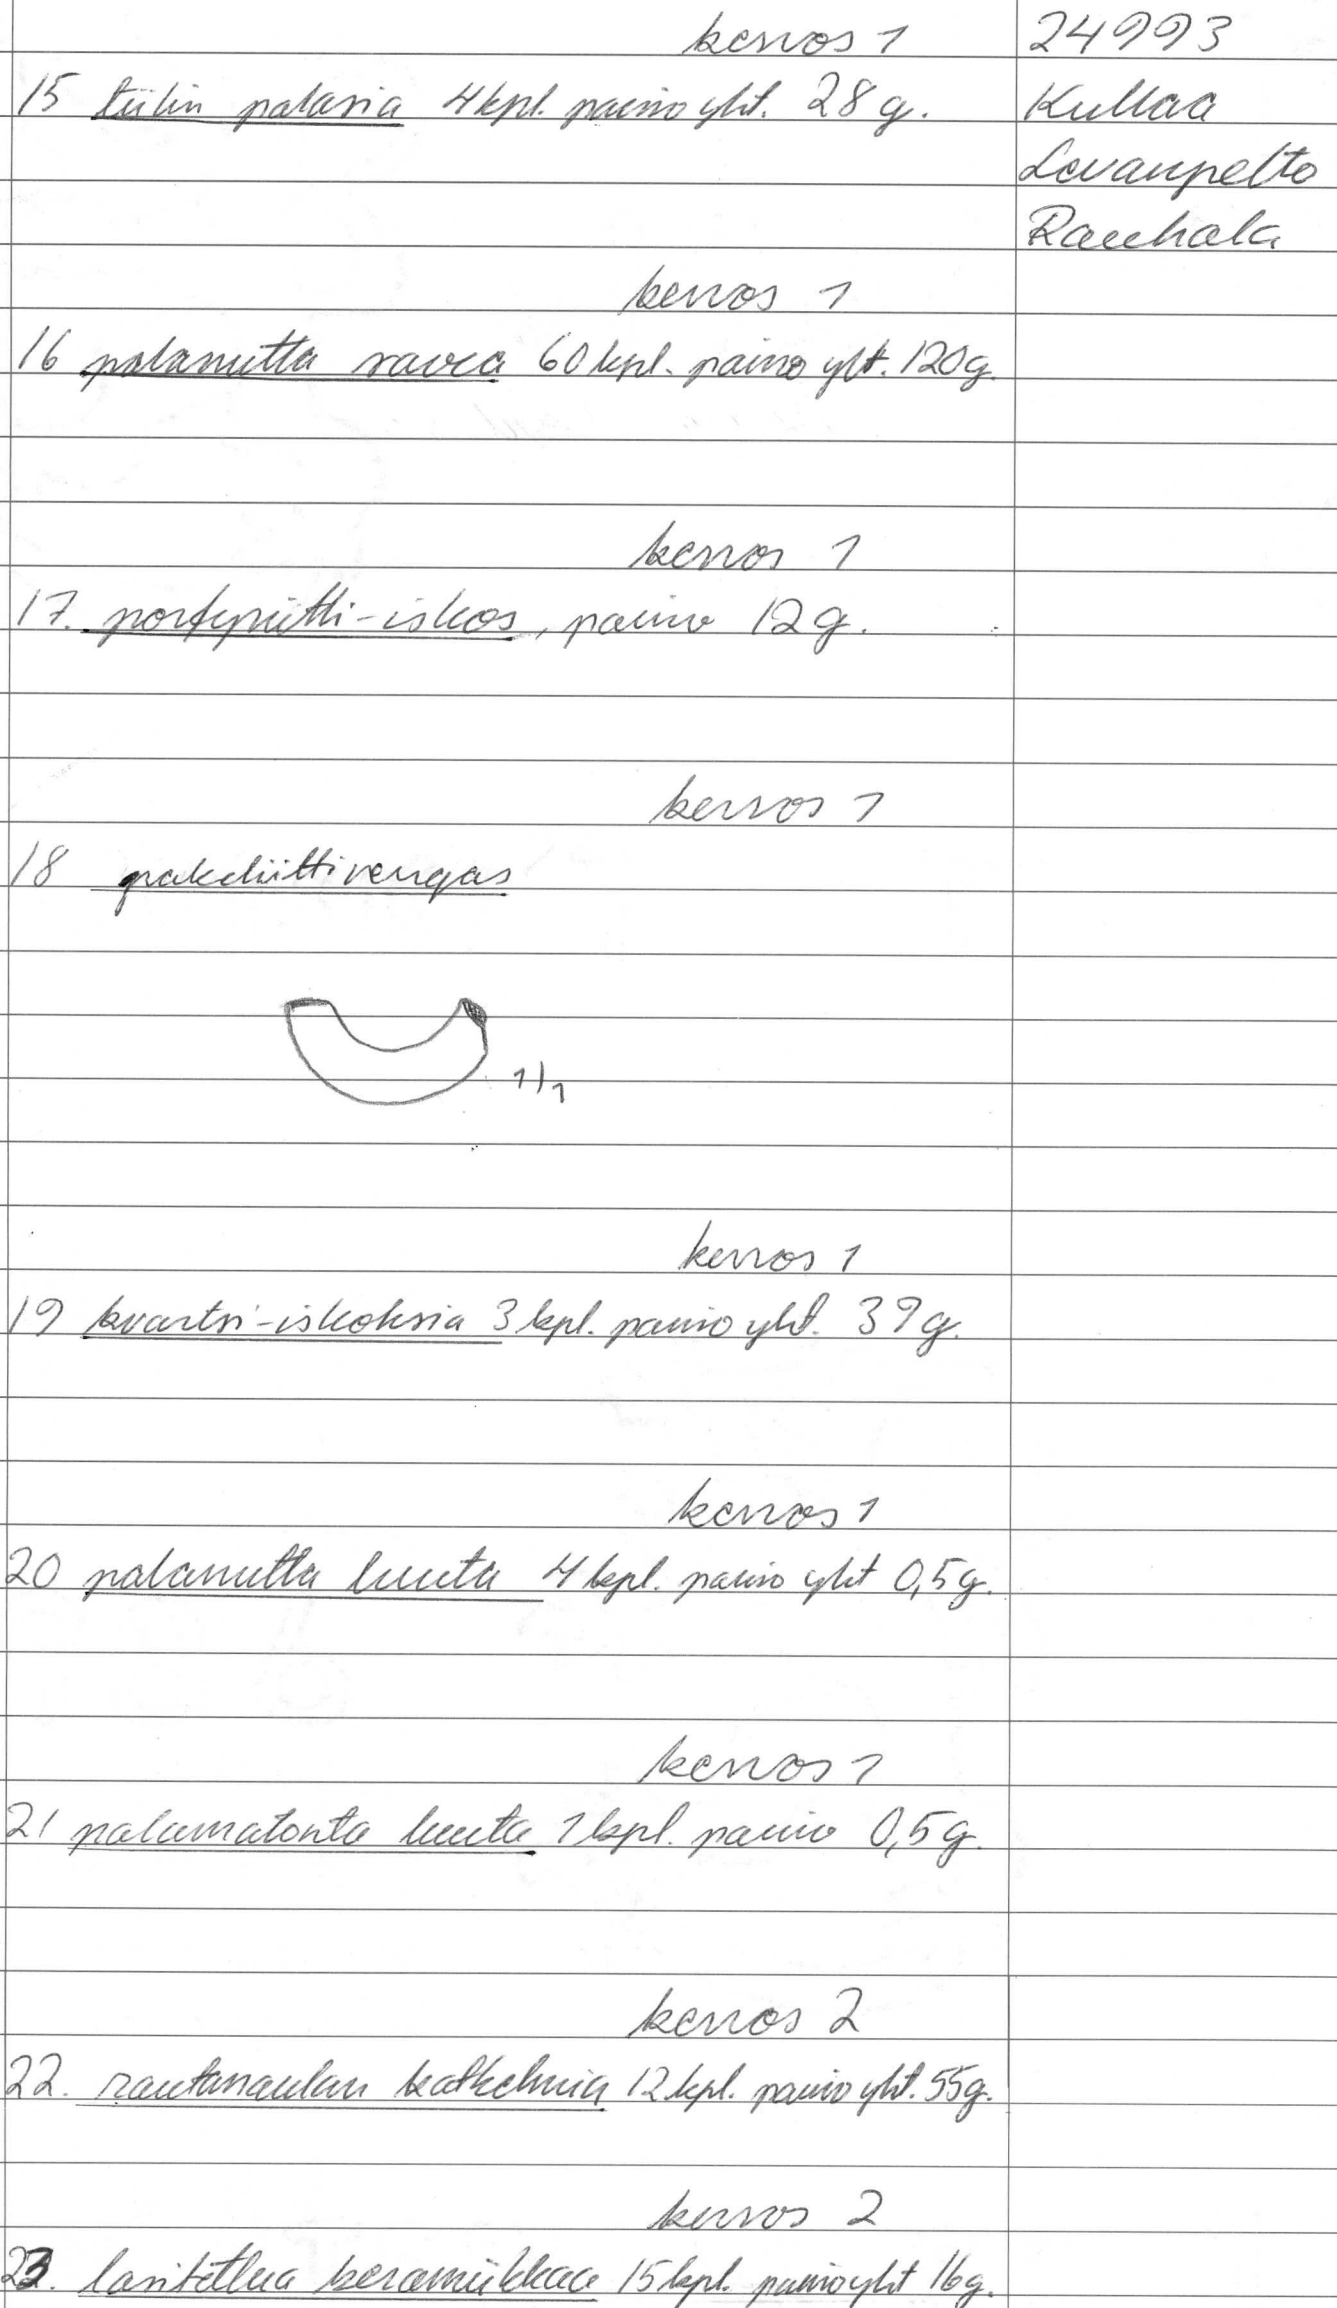 kerros 1
24993
15 tiilin palasia 4 kpl. paino yht. 28 g.
Kullaa
Levanpelto
Rauhala
kerros 1
16 palanutta savea 60 kpl. paino yht. 120g.
kerros 1
17. porfyriitti-iskos, paino 12 g.
kerros 1
18 pakeliittirengas
1/1
kerros 1
19 kvartsi-iskoksia 3 kpl. paino yht. 39 g.
kerros 1
20 palanutta luuta 4 kpl. paino yht 0,5g.
kerros 1
21 palamatonta luuta 1 kpl. paino 0,5 g.
kerros 2
22. rautanaulan katkelmia 12 kpl. paino yht. 55g.
kerros 2
23. lasitettua keramiikkaa 15 kpl. paino yht 16g.